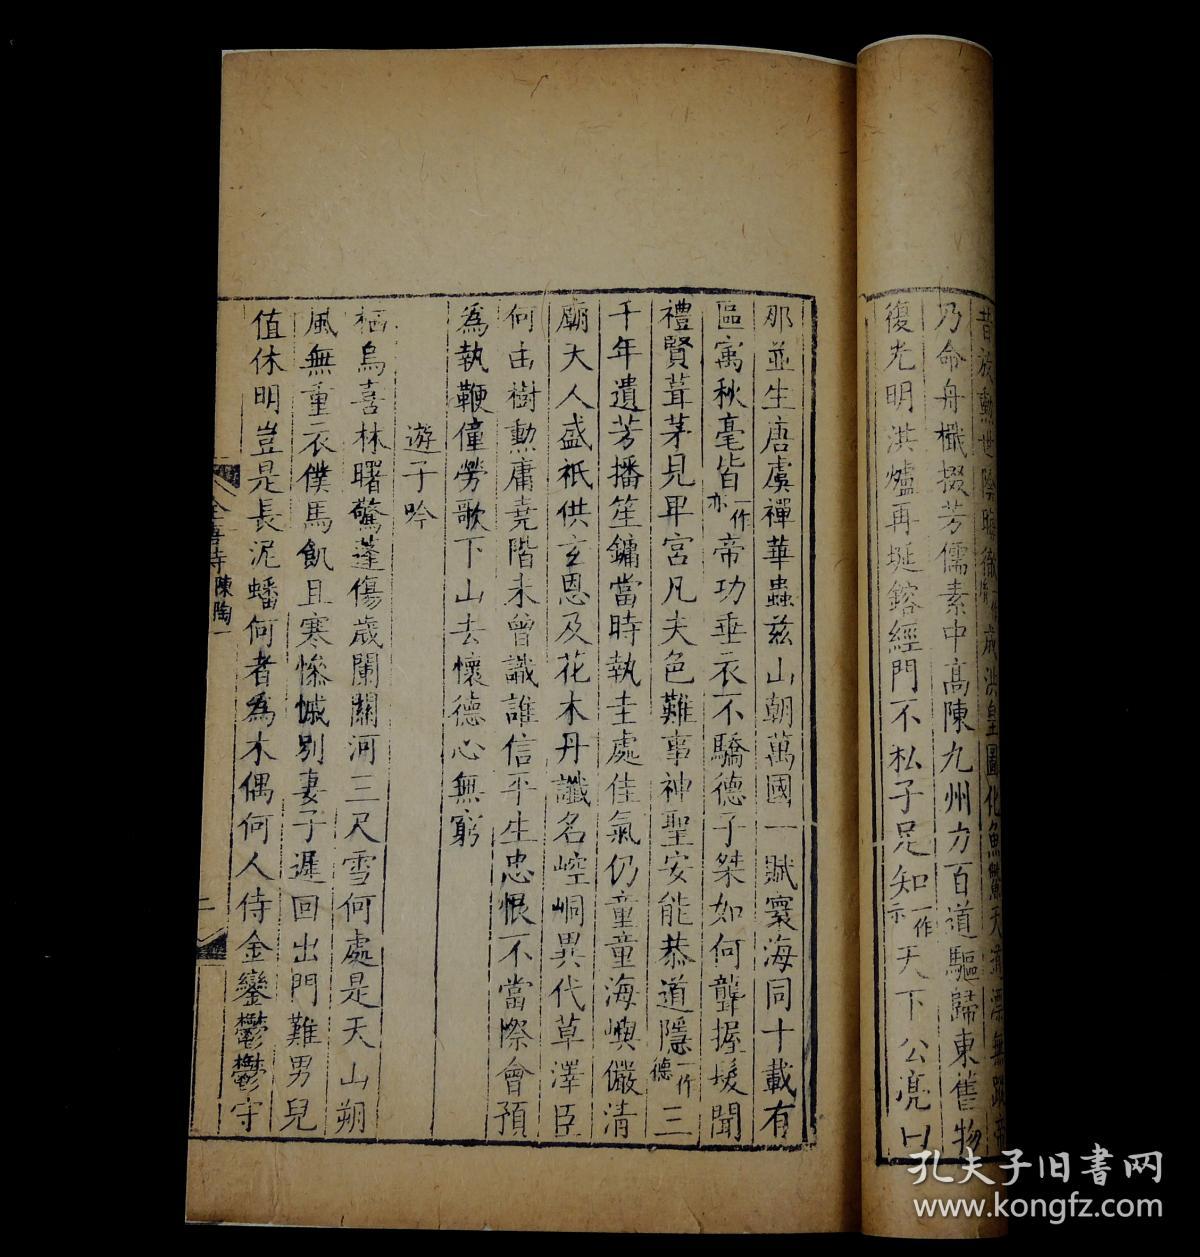 昔放勳世陰晦徹一作成洪皇圖化魚鱉天道漂無蹤帝
乃命舟檝掇芳儒素中高陳九州力百道驅歸東舊物
復光明洪爐再埏鎔經門不私子足知一作示天下公亮曰
那並生唐虞禪華蟲兹山朝萬國一賦寰海同十載有
區寓秋毫皆一作亦帝功垂衣不驕德子桀如何聾握髮聞
禮賢葺茅見卑宮凡夫色難事神聖安能恭道隱一作德三
千年遺芳播笙鏞當時執圭處佳氣仍童童海嶼儼清
廟天人盛祇供玄恩及花木丹讖名崆峒異代草澤臣
何由樹勳庸堯階未曾識誰信平生忠恨不當際會預
為執鞭僮勞歌下山去懷德心無窮
遊子吟
栖烏喜林曙驚蓬傷歲闌關河三尺雪何處是天山朔
風無重衣僕馬飢且寒慘慽別妻子遲回出門難男兒
值休明豈是長泥蟠何者為木偶何人侍金鑾鬱鬱守
全唐詩 陳陶一
二
孔夫子旧書网
www.kongfz.com